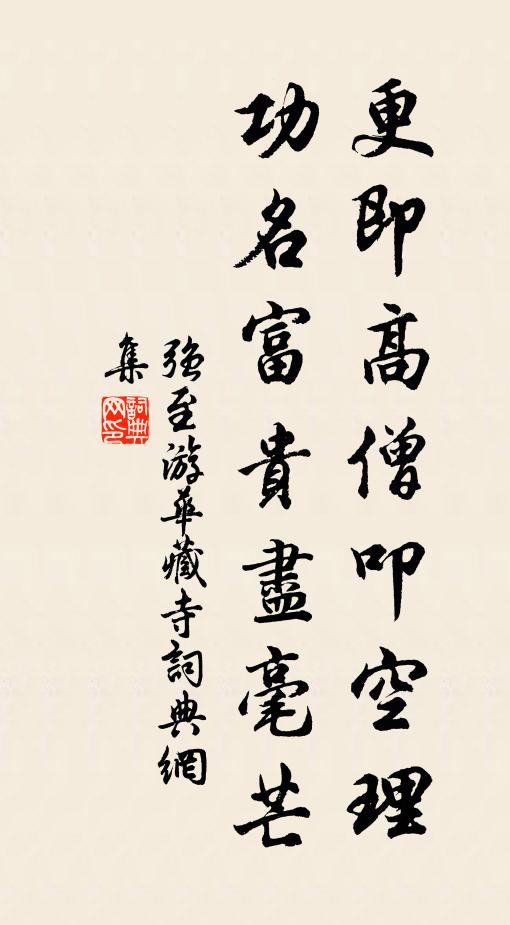 更即高僧叩空理
功名富貴盡毫芒
強至游華藏寺詞典網
集
詞典
网印